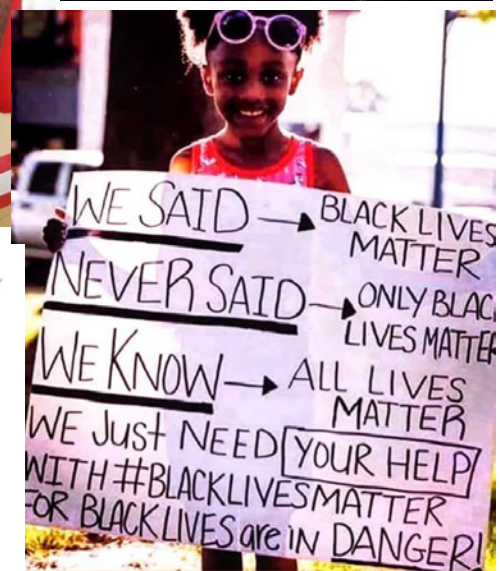 WE SAID → BLACK LIVES
MATTER
NEVER SAID → ONLY BLAC
LIVES MATTER
WE KNOW → ALL LIVES
MATTER
WE JUSt NEED YOUR HELP
WITH #BLACKLIVESMATTER
FOR BLACK LIVES are iN DANGER!